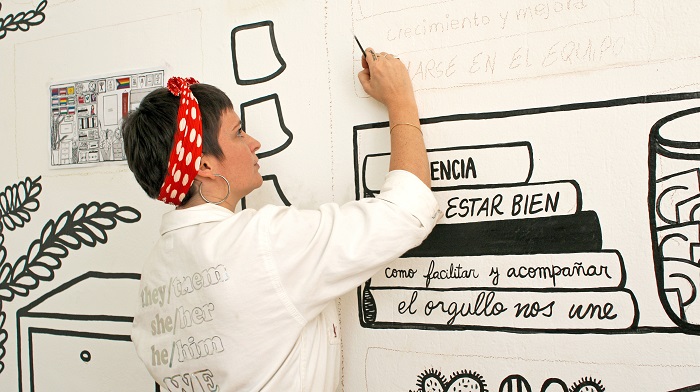 crecimiento y mejora
EN EL EQUIPO
ENCIA
ESTAR BIEN
como facilitar y acompañar
el orgullo nos une
they/them
she/her
he/him
WE